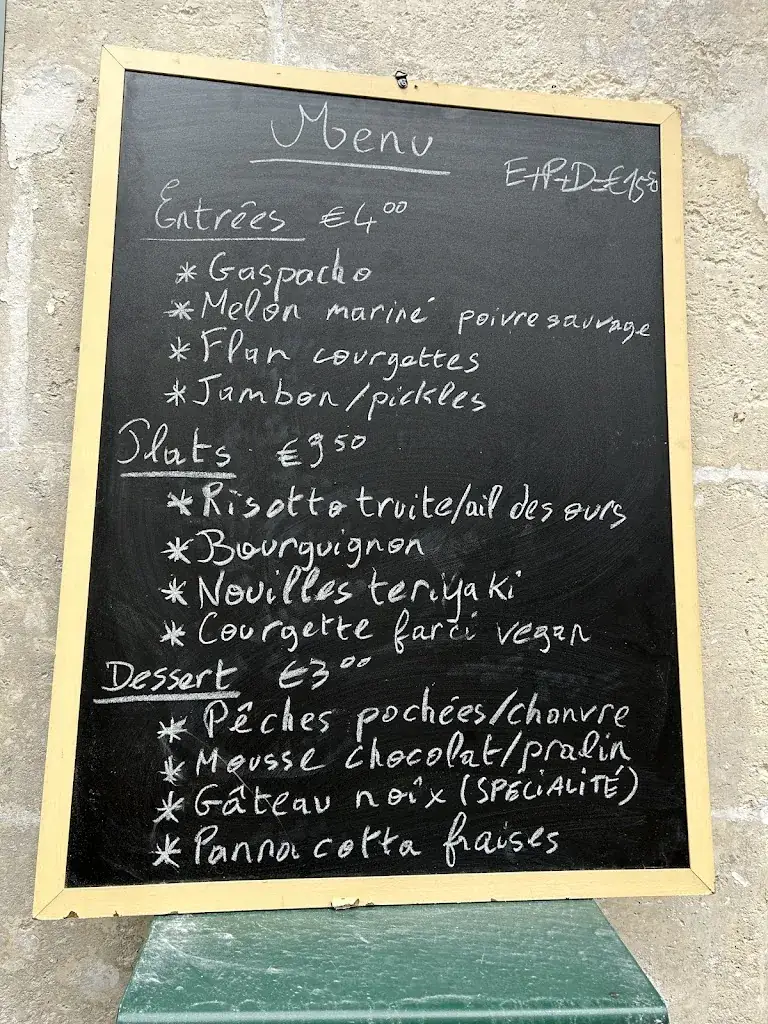 Menu
E+P+D=€15⁵⁰
Entrées €4⁰⁰
* Gaspacho
* Melon mariné poivre sauvage
* Flan courgettes
* Jambon/pickles
Plats €9⁵⁰
* Risotto truite/ail des ours
* Bourguignon
* Nouilles teriyaki
* Courgette farci vegan
Dessert €3⁰⁰
* Pêches pochées/chanvre
* Mousse chocolat/pralin
* Gâteau noîx (SPÉCIALITÉ)
* Panna cotta fraises